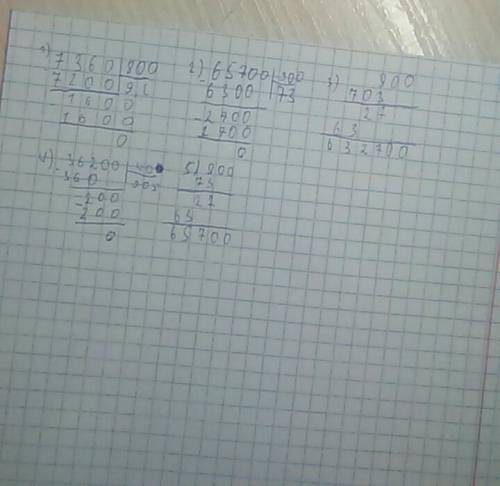 1) 7360 | 800
7200 | 92
- 1600
1600
0
2) 65700 | 900
- 6300 | 73
- 2700
2700
0
3) 900
703
27
63
632700
4) 36200 | 40
- 360 | 905
- 200
200
0
5) 900
73
27
63
65700